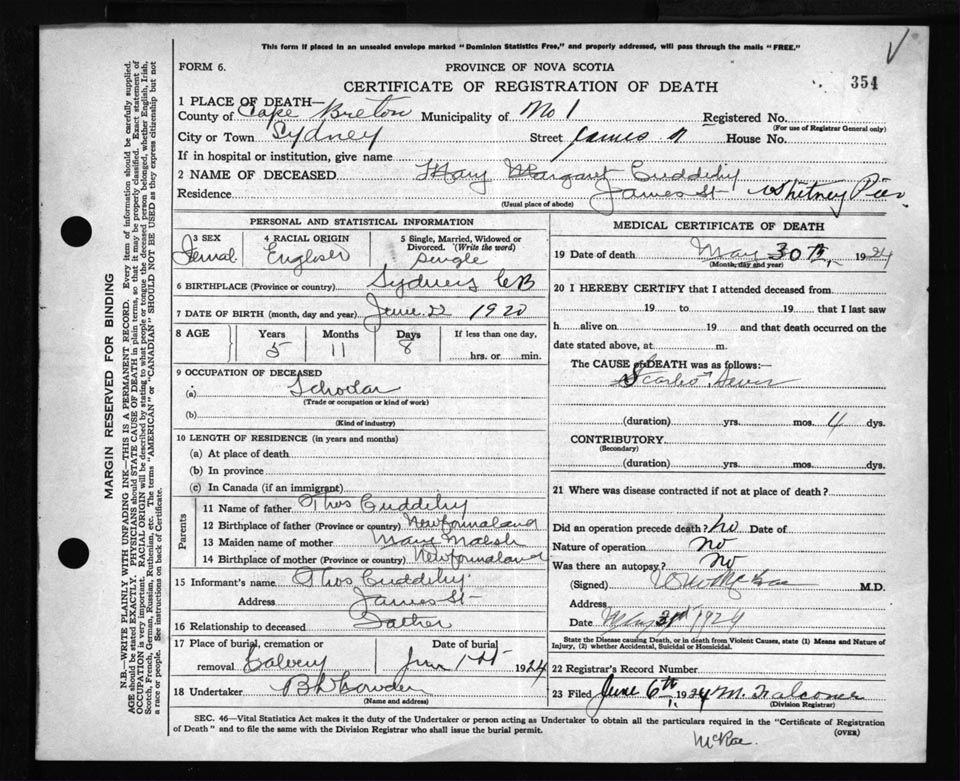 This form if placed in an unsealed envelope marked "Dominion Statistics Free," and properly addressed, will pass through the mails "FREE."
FORM 6.
PROVINCE OF NOVA SCOTIA
CERTIFICATE OF REGISTRATION OF DEATH
354
1 PLACE OF DEATH—
County of Cape Breton Municipality of No 1 Registered No.
(For use of Registrar General only)
City or Town Sydney Street James House No.
If in hospital or institution, give name
2 NAME OF DECEASED Mary Margaret Cuddihy
Residence James St Whitney Pier
(Usual place of abode)
PERSONAL AND STATISTICAL INFORMATION
3 SEX Femal
4 RACIAL ORIGIN English
5 Single, Married, Widowed or Divorced. (Write the word) Single
6 BIRTHPLACE (Province or country) Sydney CB
7 DATE OF BIRTH (month, day and year) June 22 1920
8 AGE Years 5 Months 11 Days 8 If less than one day, hrs. or min.
9 OCCUPATION OF DECEASED
(a) Scholar
(Trade or occupation or kind of work)
(b)
(Kind of industry)
10 LENGTH OF RESIDENCE (in years and months)
(a) At place of death
(b) In province
(c) In Canada (if an immigrant)
Parents
11 Name of father Thos Cuddihy
12 Birthplace of father (Province or country) Newfoundland
13 Maiden name of mother Mary Walsh
14 Birthplace of mother (Province or country) Newfoundland
15 Informant's name Thos Cuddihy
Address James St
16 Relationship to deceased Father
17 Place of burial, cremation or removal Calvery
Date of burial June 1st 1924
18 Undertaker
(Name and address)
MEDICAL CERTIFICATE OF DEATH
19 Date of death May 30th, 1924
(Month, day and year)
20 I HEREBY CERTIFY that I attended deceased from
19 to 19 that I last saw
h alive on 19 and that death occurred on
date stated above, at m.
The CAUSE of DEATH was as follows:—
Scarlet Fever
(duration) yrs. mos. 4 dys.
CONTRIBUTORY
(Secondary)
(duration) yrs. mos. dys.
21 Where was disease contracted if not at place of death?
Did an operation precede death? No Date of
Nature of operation No
Was there an autopsy? No
(Signed) M.D.
Address
Date May 31st 1924
State the Disease causing Death, or in death from Violent Causes, state (1) Means and Nature of Injury, (2) whether Accidental, Suicidal or Homicidal.
22 Registrar's Record Number
23 Filed June 6th 1924 M. Falconer
(Division Registrar)
SEC. 46—Vital Statistics Act makes it the duty of the Undertaker or person acting as Undertaker to obtain all the particulars required in the "Certificate of Registration
of Death" and to file the same with the Division Registrar who shall issue the burial permit.
(OVER)
McRae.
MARGIN RESERVED FOR BINDING
N.B.—WRITE PLAINLY WITH UNFADING INK—THIS IS A PERMANENT RECORD. Every item of information should be carefully supplied.
AGE should be stated EXACTLY. PHYSICIANS should STATE CAUSE OF DEATH in plain terms, so that it may be properly classified. Exact statement of
OCCUPATION is very important. RACIAL ORIGIN will be described by stating to what people or tongue the deceased person belonged, whether English, Irish,
Scotch, French, German, Russian, Ruthenian, etc. The terms "AMERICAN" or "CANADIAN" SHOULD NOT BE USED as they express citizenship but not
a race or people. See instructions on back of Certificate.